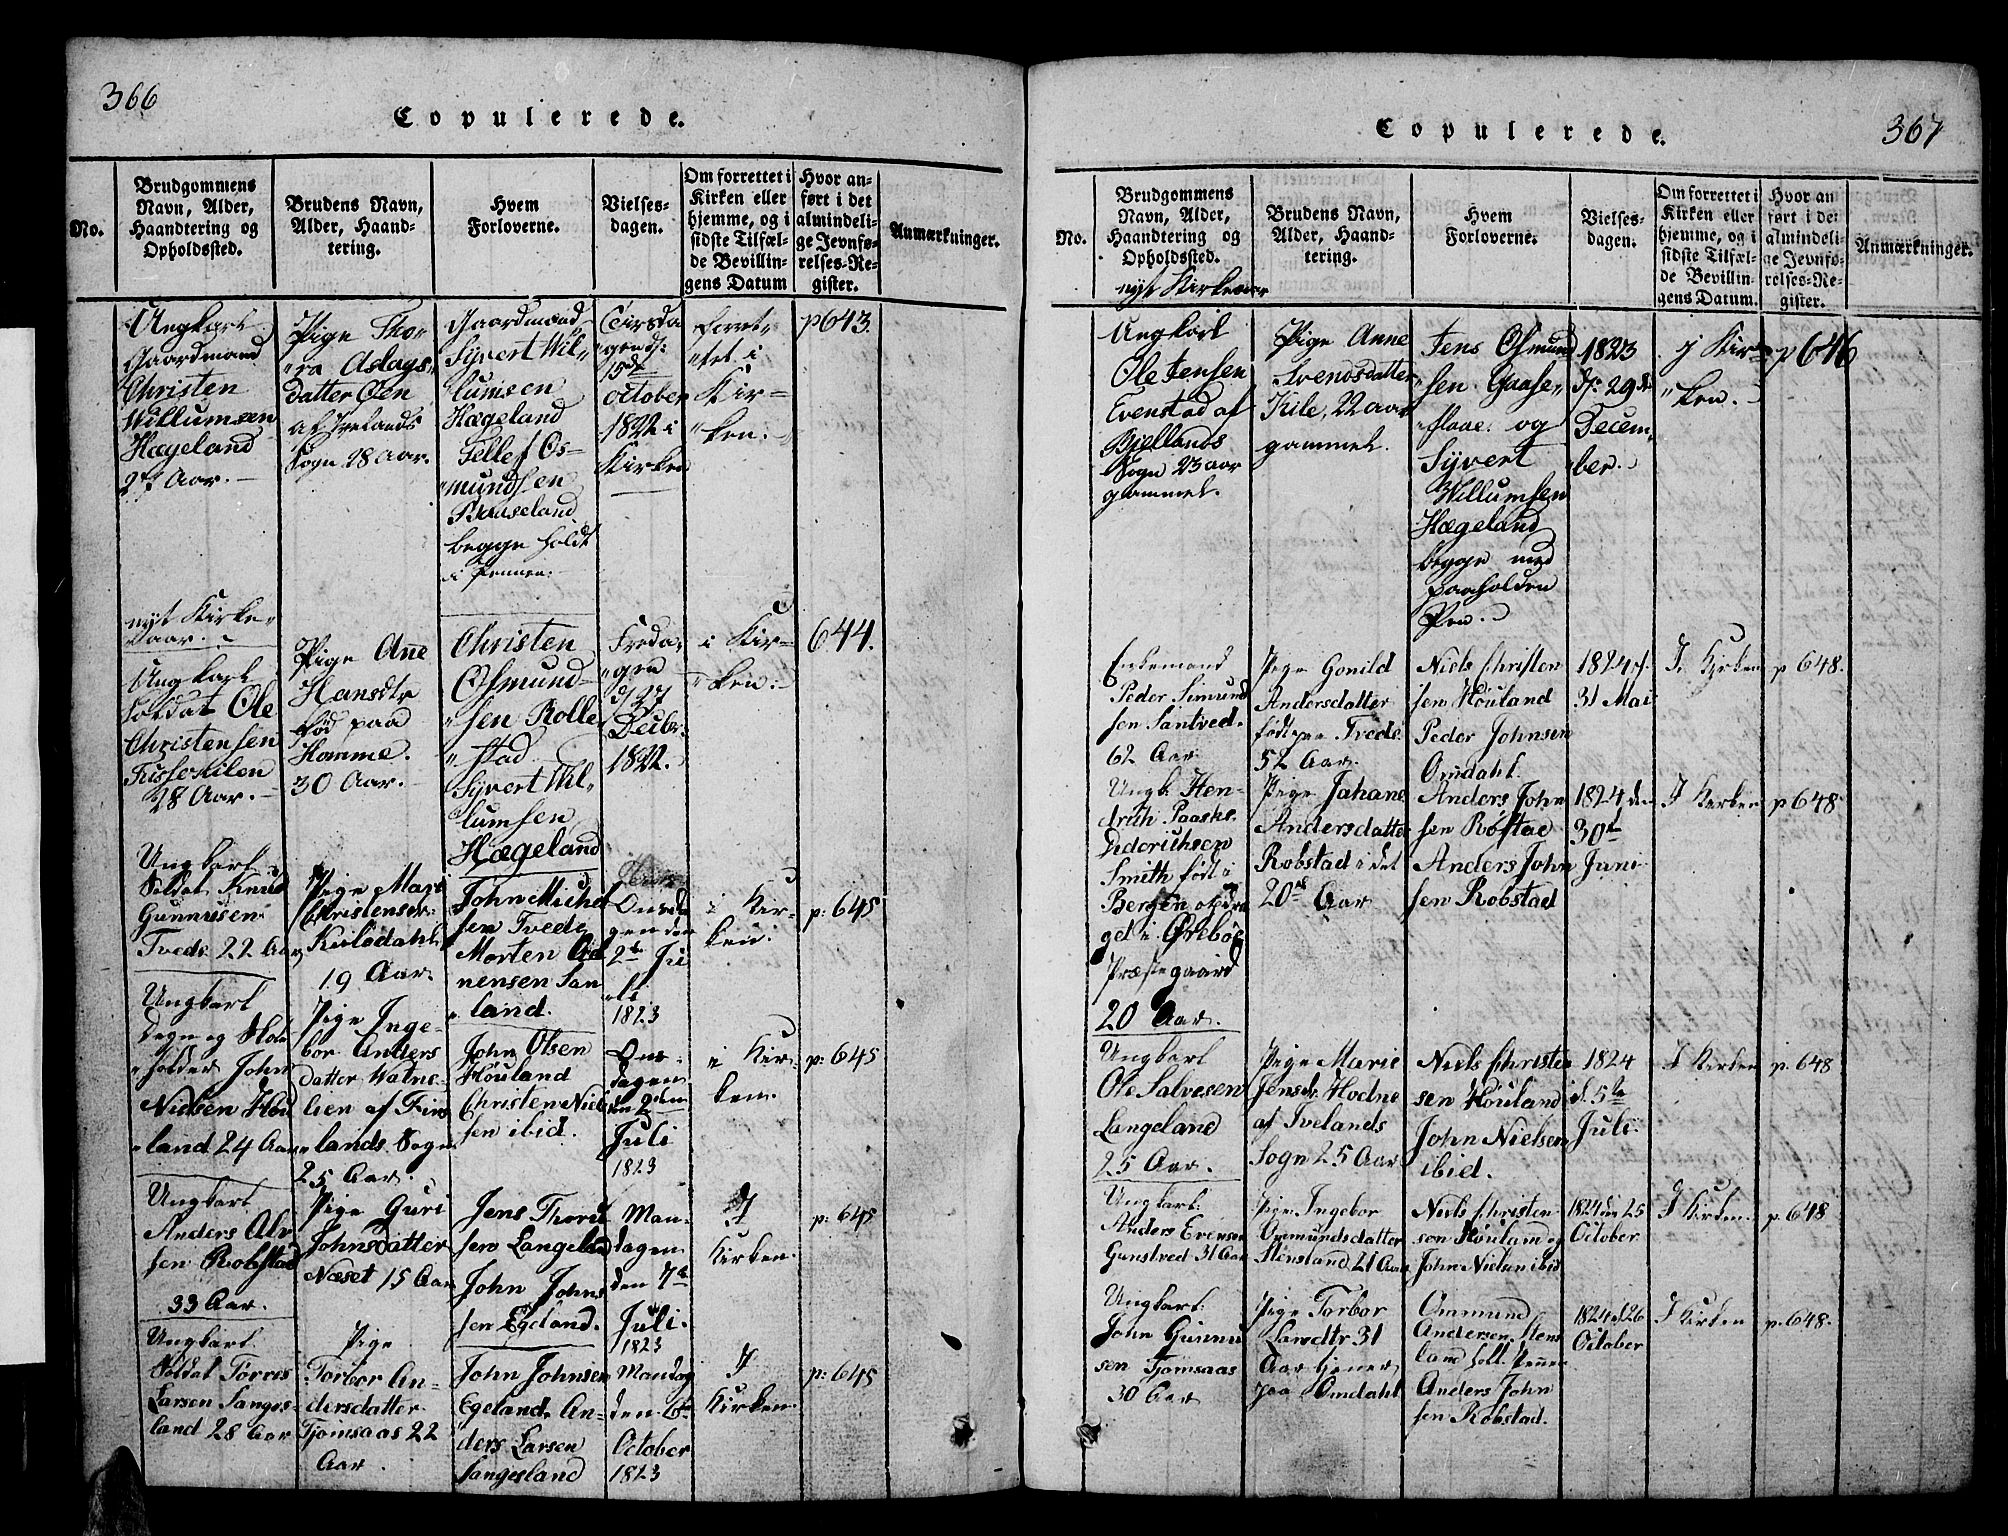 366
Copulerede.
No.
Brudgommens
Navn, Alder,
Haandtering og
Opholdssted.
Brudens Navn,
Alder, Haand-
tering.
Hvem
Forloverne.
Vielses-
dagen.
Om forrettet i
Kirken eller
hjemme, og i
sidste Tilfæl-
de Bevillin-
gens Datum
Hvor an-
ført i det
almindeli-
ge Jevnfø-
relses-Re-
gister.
Anmærkninger.
Ungkarl
Gaardmand
Christen
Willumsen
Hægeland
27 Aar.
Pige Tho-
ra Aslags
datter Øen
af Ivelands
Sogn 28 Aar.
Gaardmand
Syvert Wil-
lumsen
Hægeland
Tellef Os-
mundsen
begge holdt
i Pennen.
Tirsda
gen d:
15de
october
1822 i
Kirken
forret-
tet i
Kir-
ken.
p 643.
nyt Kirke-
aar.
Ungkarl
Soldat Ole
Christensen
28 Aar.
Pige Ane
Hansdtr
fød paa
Homme.
30 Aar.
Christen
Osmund-
sen Rolle
stad
Syvert Wil-
lumsen
Hægeland
Freda-
gen
d/27
Decbr.
1822.
i Kir-
ken.
644.
Ungkarl
Soldat Knud
Gunnusen
Tvede 22 Aar
Pige Mari
Christensdr
Kivledahl
19 Aar.
John Michel
sen Tvede
Morten Ad
nensen San
land.
Onsda
gen den
2de Ju
li
1823
i Kir-
ken.
p: 645
Ungkarl
Degn og Skol
holder John
Nielsen Høu
land 24 Aar
Pige Inge-
bor Anders
datter Watne-
lien af Fins
lands Sogn
25 Aar.
John Olsen
Høuland
Christen Niel
sen ibid.
Ons-
dagen
den 2den
Juli
1823
i Kir-
ken.
p: 645
Ungkarl
Anders Alv
sen Robstad
33 Aar.
Pige Guri
Johnsdatter
Næset 15 Aar
Jens Thord
sen Langeland
John Johns
sen Egeland.
Man-
dagen
den 7de
Juli.
1823
I
Kirken.
p: 645
Ungkarl
Soldat Torres
Larsen Sanges-
land 28 Aar
Pige
Torbor An-
dersdatter
Tjomsaas 22
Aar.
John Johnsen
Egeland, An-
ders Larsen
Sangesland
Mandag
den 6te
October
1823
I
Kirken.
p: 645
367
Copulerede.
No.
Brudgommens
Navn, Alder,
Haandtering og
Opholdssted.
Brudens Navn,
Alder, Haand-
tering.
Hvem
Forloverne.
Vielses-
dagen.
Om forrettet i
Kirken eller
hjemme, og i
sidste Tilfæl-
de Bevillin-
gens Datum.
Hvor an
ført i det
almindeli-
ge Jevnfø-
relses-Re-
gister.
Anmærkninger.
nyt Kirkeaar
Ungkarl
Ole Jensen
Evenstad af
Bjellands
Sogn 23 aar
gammel.
Pige Anne
Svendsdatter
Kile, 22 aar
gammel.
Jens Osmund
sen Gaase-
flaae og
Syvert
Willumsen
Hægeland
begge med
paaholden
Pen.
1823
d: 29de
Decem-
ber.
i Kir-
ken.
p 646
Enkemand
Peder Simund
sen Santved.
62 Aar.
Pige Gonild
Andersdatter
født paa Tvede
52 Aar.
Niels Christen
sen Høuland
Peder Johnsen
Omdahl.
1824 d.
31 Mai
I Kirken
p 648.
Ungk. Hen-
drich Paaske
Diderichsen
Smith født i
Bergen opdra
get i Øvrebøe
Præstegaard
20 Aar.
Pige Johane
Andersdatter
Robstad i det
20de Aar
Anders John
sen Røstae
Anders John
sen Robstad
1824 den
30te
Juni
I Kirken
p. 648.
Ungkarl
Ole Salvesen
Langeland
25 Aar.
Pige Marie
Jensdr. Hodne
af Ivelands
Sogn 25 Aar
Niels Christen
sen Høuland
John Nielsen
ibid.
1824
d. 5te
Juli
I Kirken
p. 648
Ungkarl
Anders Evensen
Gunstved 31 Aar
Pige Ingebor
Ommundsdatter
Stensland 21 Aar
Niels Christen
sen Høuland og
John Nielsen ibid
1824 den 25
October
I Kirken
p. 648
Ungkarl
John Gunnu
sen Tjomsaas
30 Aar
Pige Torbor
Larsdtr 31
Aar tjener
paa Omdahl
Ommund
Andersen Stens
land holt Pennen
Anders John
sen Robstad.
1824 d 26
October
I Kirken
p. 648.